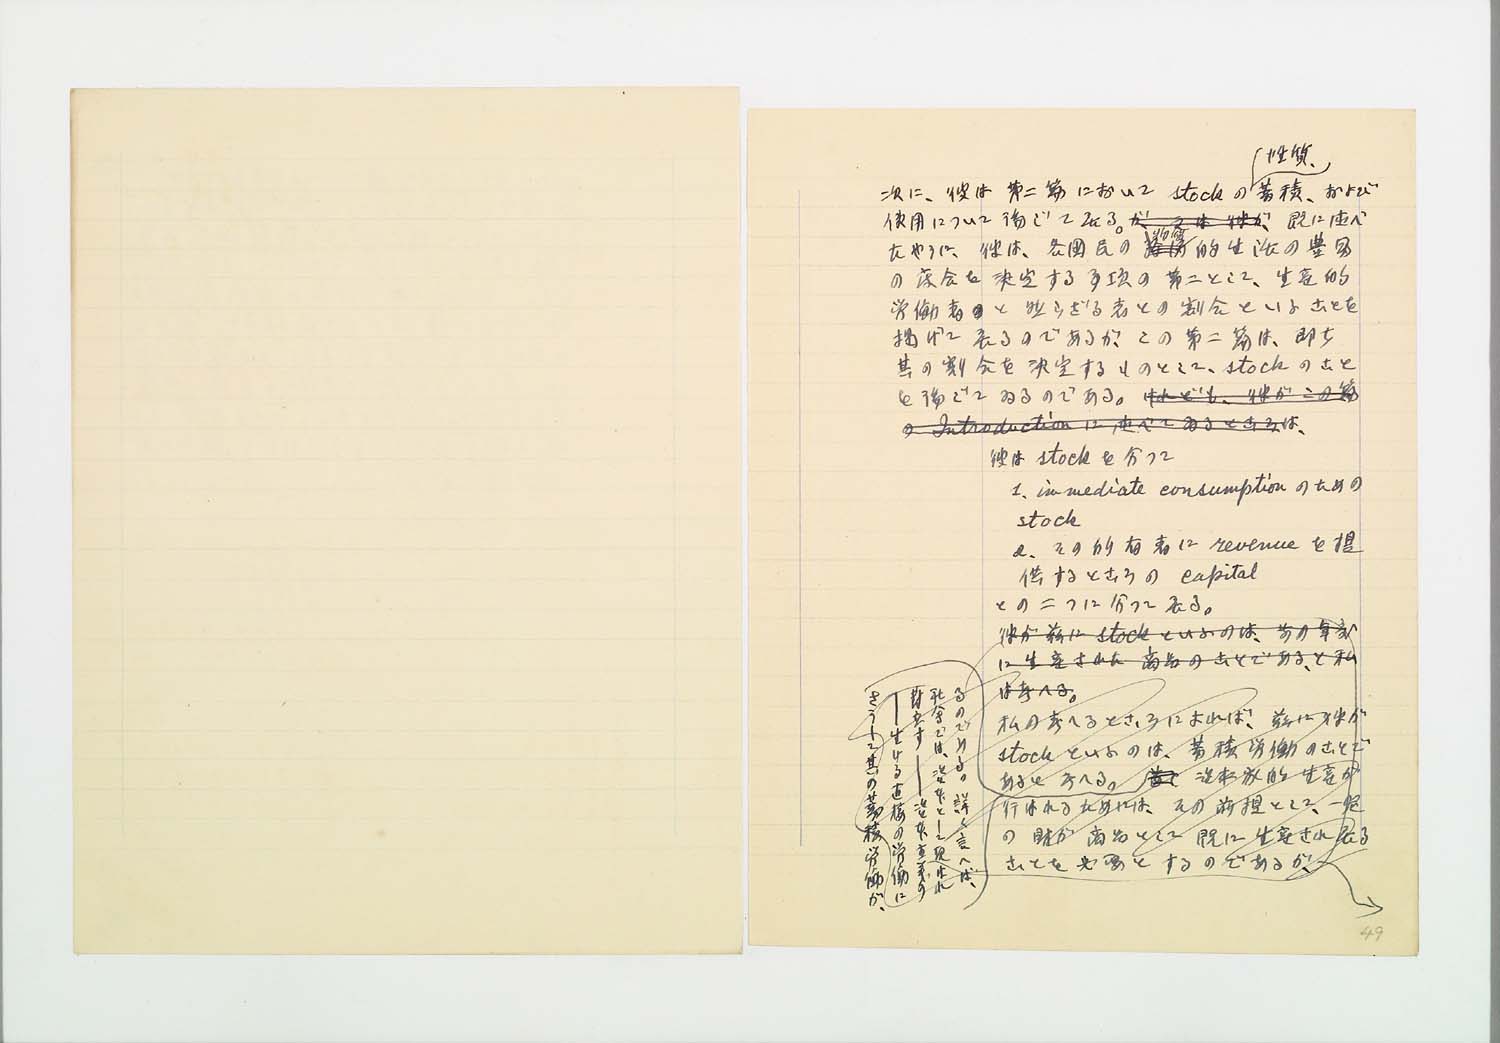 性質、
次に、彼は第二篇において stock の蓄積、および
使用について論じて居る。が、又は彼が、既に述べ
たやうに、彼は、各国民の物質的生活の豊富
の度合を決定する事項の第二として、生産的
労働者と然らざる者との割合といふことを
掲げて居るのであるが、この第二篇は、即ち
其の割合を決定するものとして、stock のこと
を論じてゐるのである。けれども、彼がこの篇
の Introduction に述べてゐるところは、
彼は stock を分つて
1. immediate consumption のための
stock
2. その所有者に revenue を提
供するところの capital
との二つに分つて居る。
彼が茲に stock といふのは、前の年度
に生産された商品のことである、と私
は考へる。
私の考へるところによれば、茲に彼が
stock といふのは、蓄積労働のことで
あると考へる。資本家的生産が
行はれるためには、その前提として、一定
の財が商品として既に生産され居る
ことを必要とするのであるが、
るのである。詳しく言へば、
社会では、資本として現はれ
資本主義の
―生ける直接の労働に
さうして其の蓄積労働が、
49